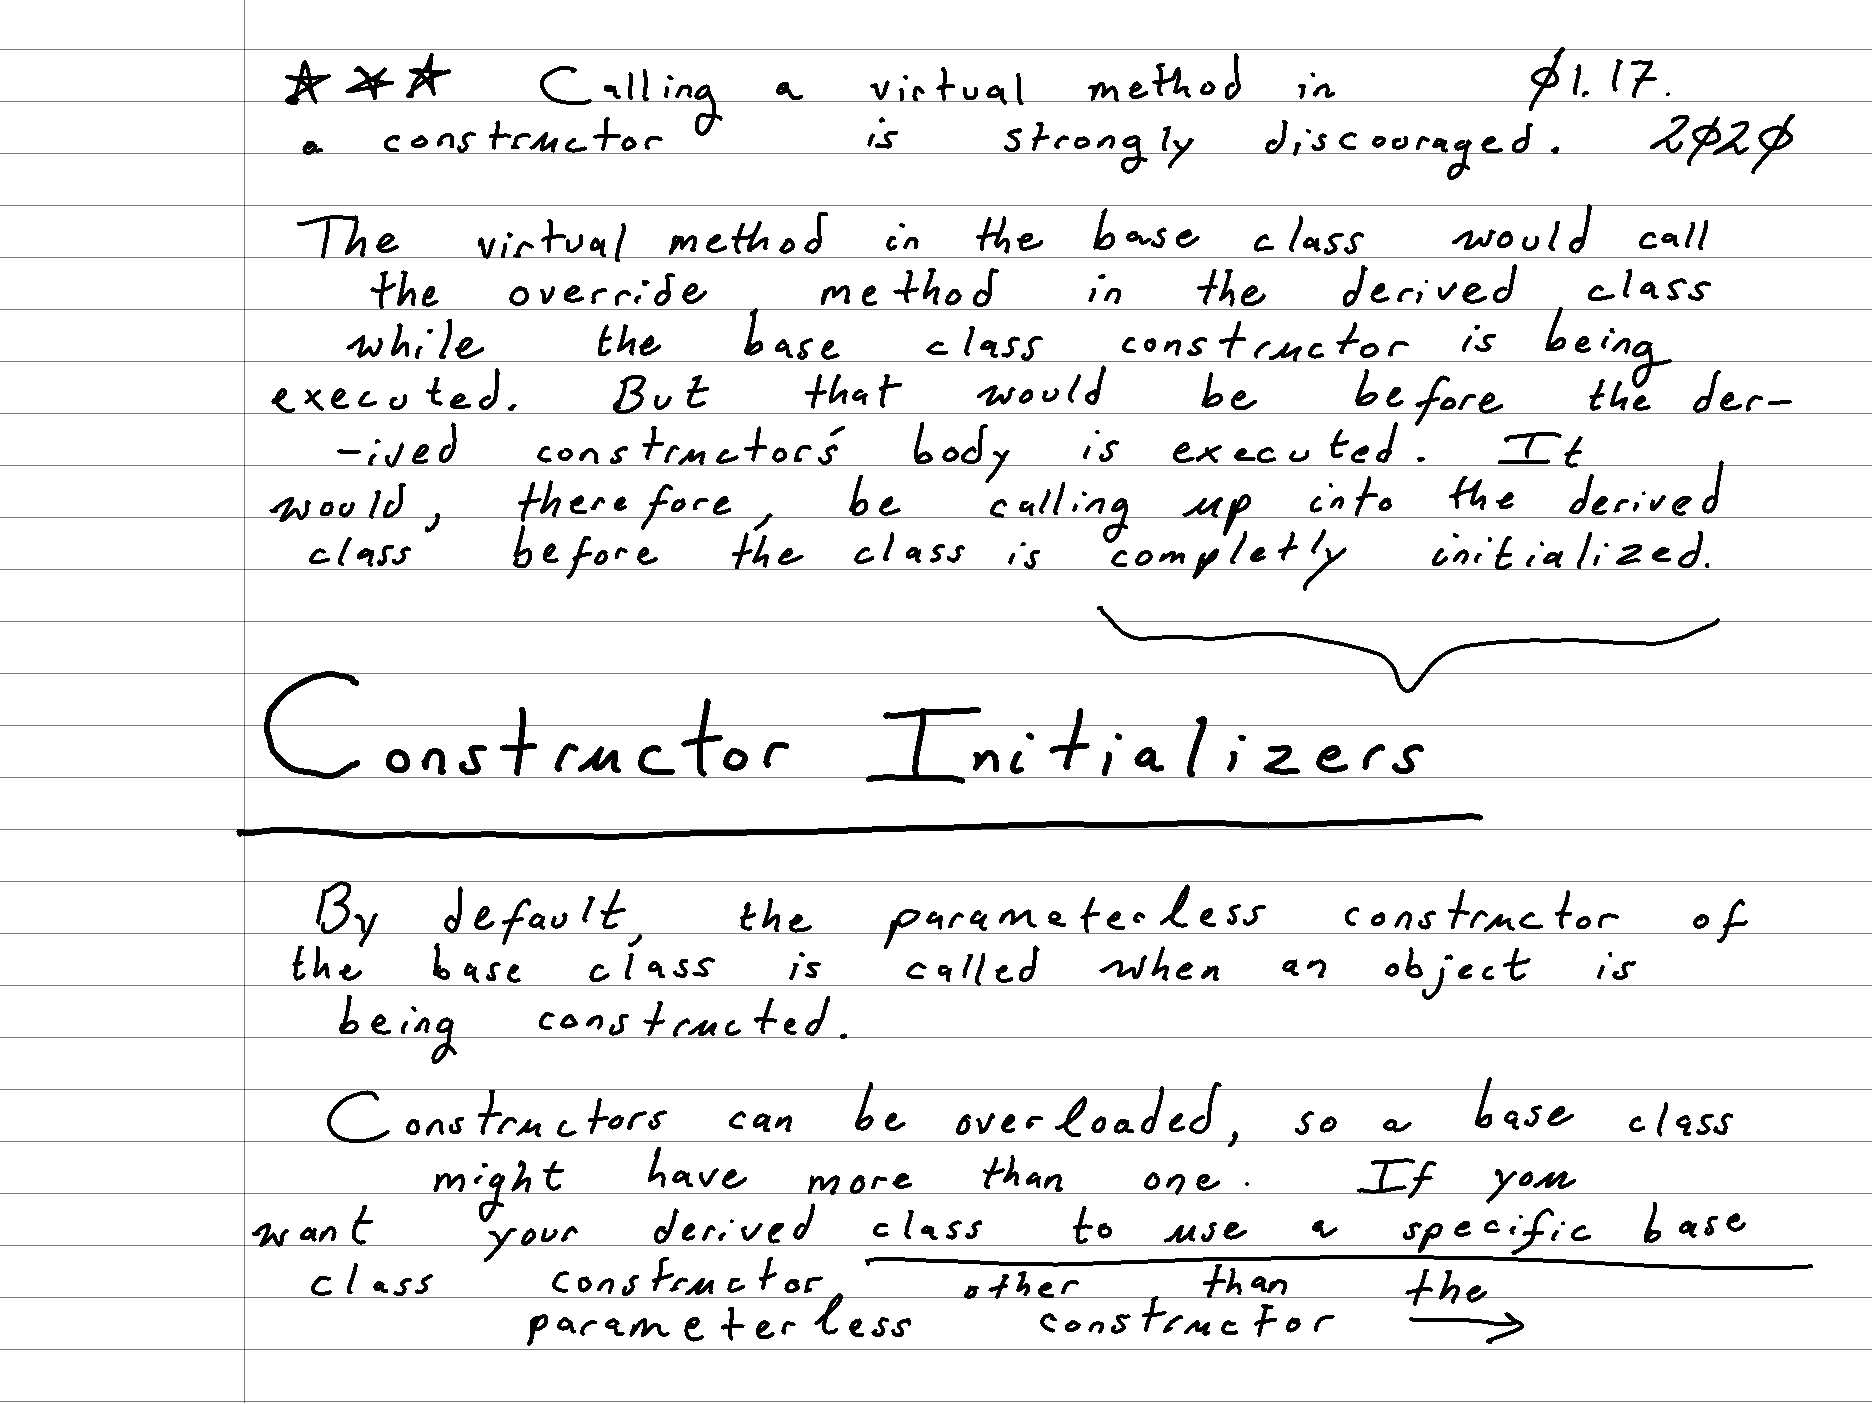 ★★★ Calling a virtual method in Ø1.17.
a constructor is strongly discouraged. 2Ø2Ø
The virtual method in the base class would call
the override method in the derived class
while the base class constructor is being
executed. But that would be before the der-
-ived constructor's body is executed. It
would, therefore, be calling up into the derived
class before the class is completly initialized.
Constructor Initializers
By default, the parameterless constructor of
the base class is called when an object is
being constructed.
Constructors can be overloaded, so a base class
might have more than one. If you
want your derived class to use a specific base
class constructor, other than the
parameterless constructor →